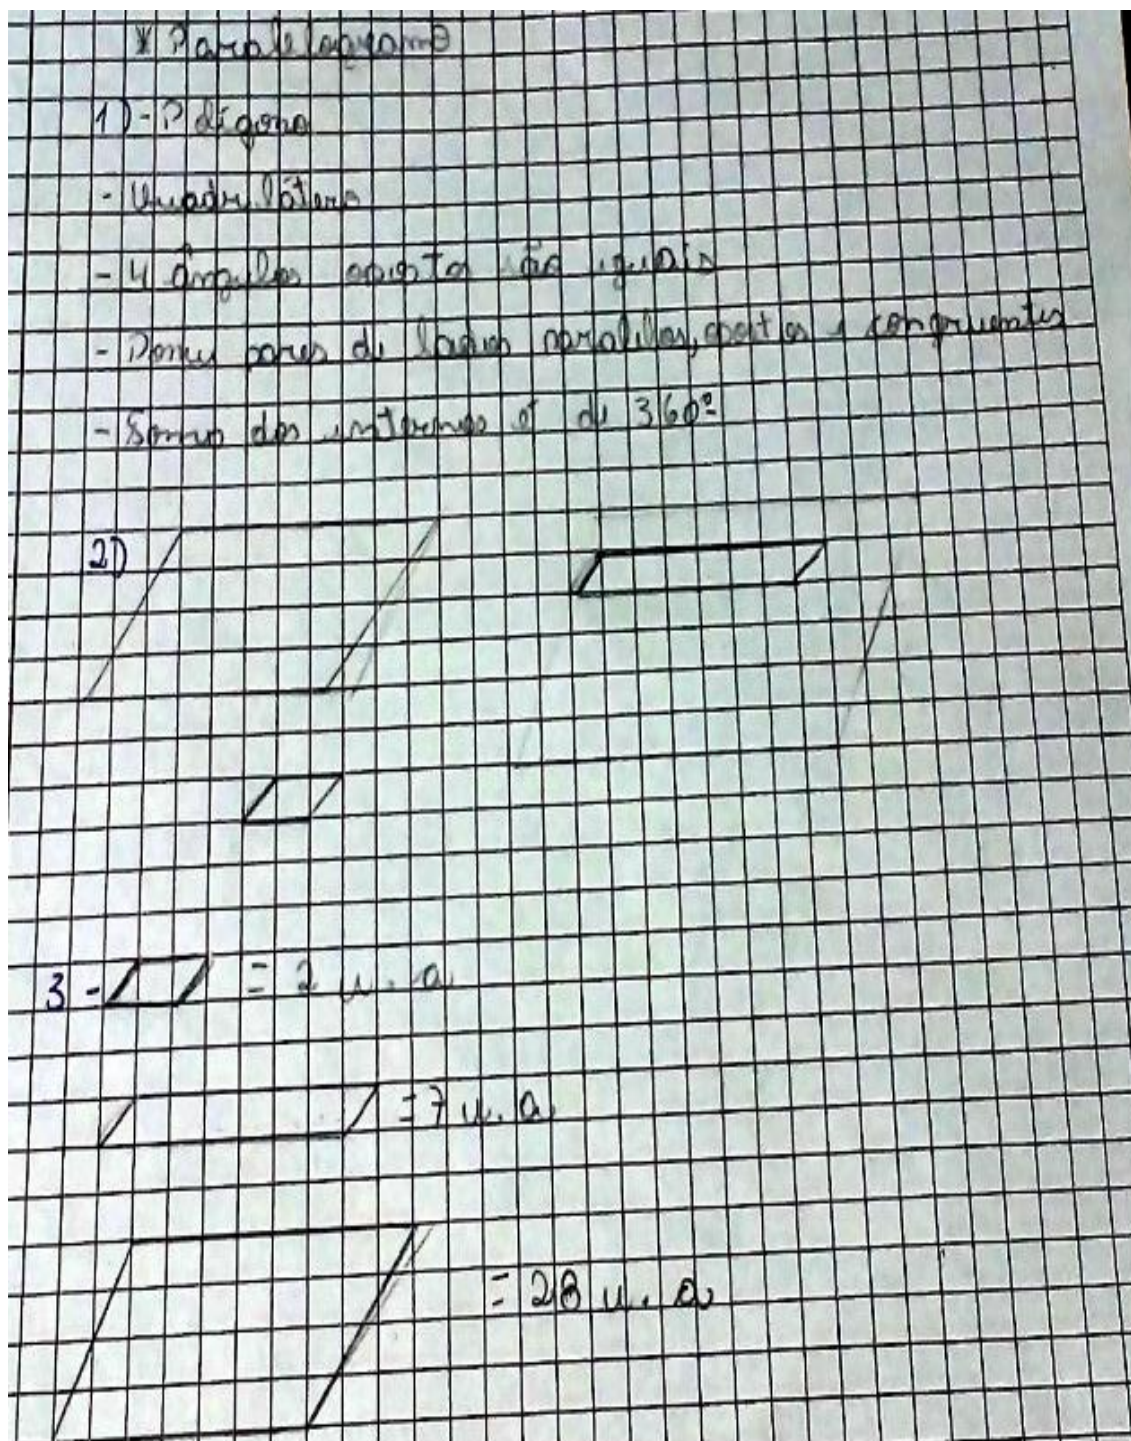 * Paralelogramo
1) - Polígono
- Quadrilátero
- 4 ângulos opostos são iguais
- pares de lados paralelos, opostos e congruentes
- Soma dos internos é de 360°
2)
3 - = 2 u. a
= 7 u. a
= 28 u. a